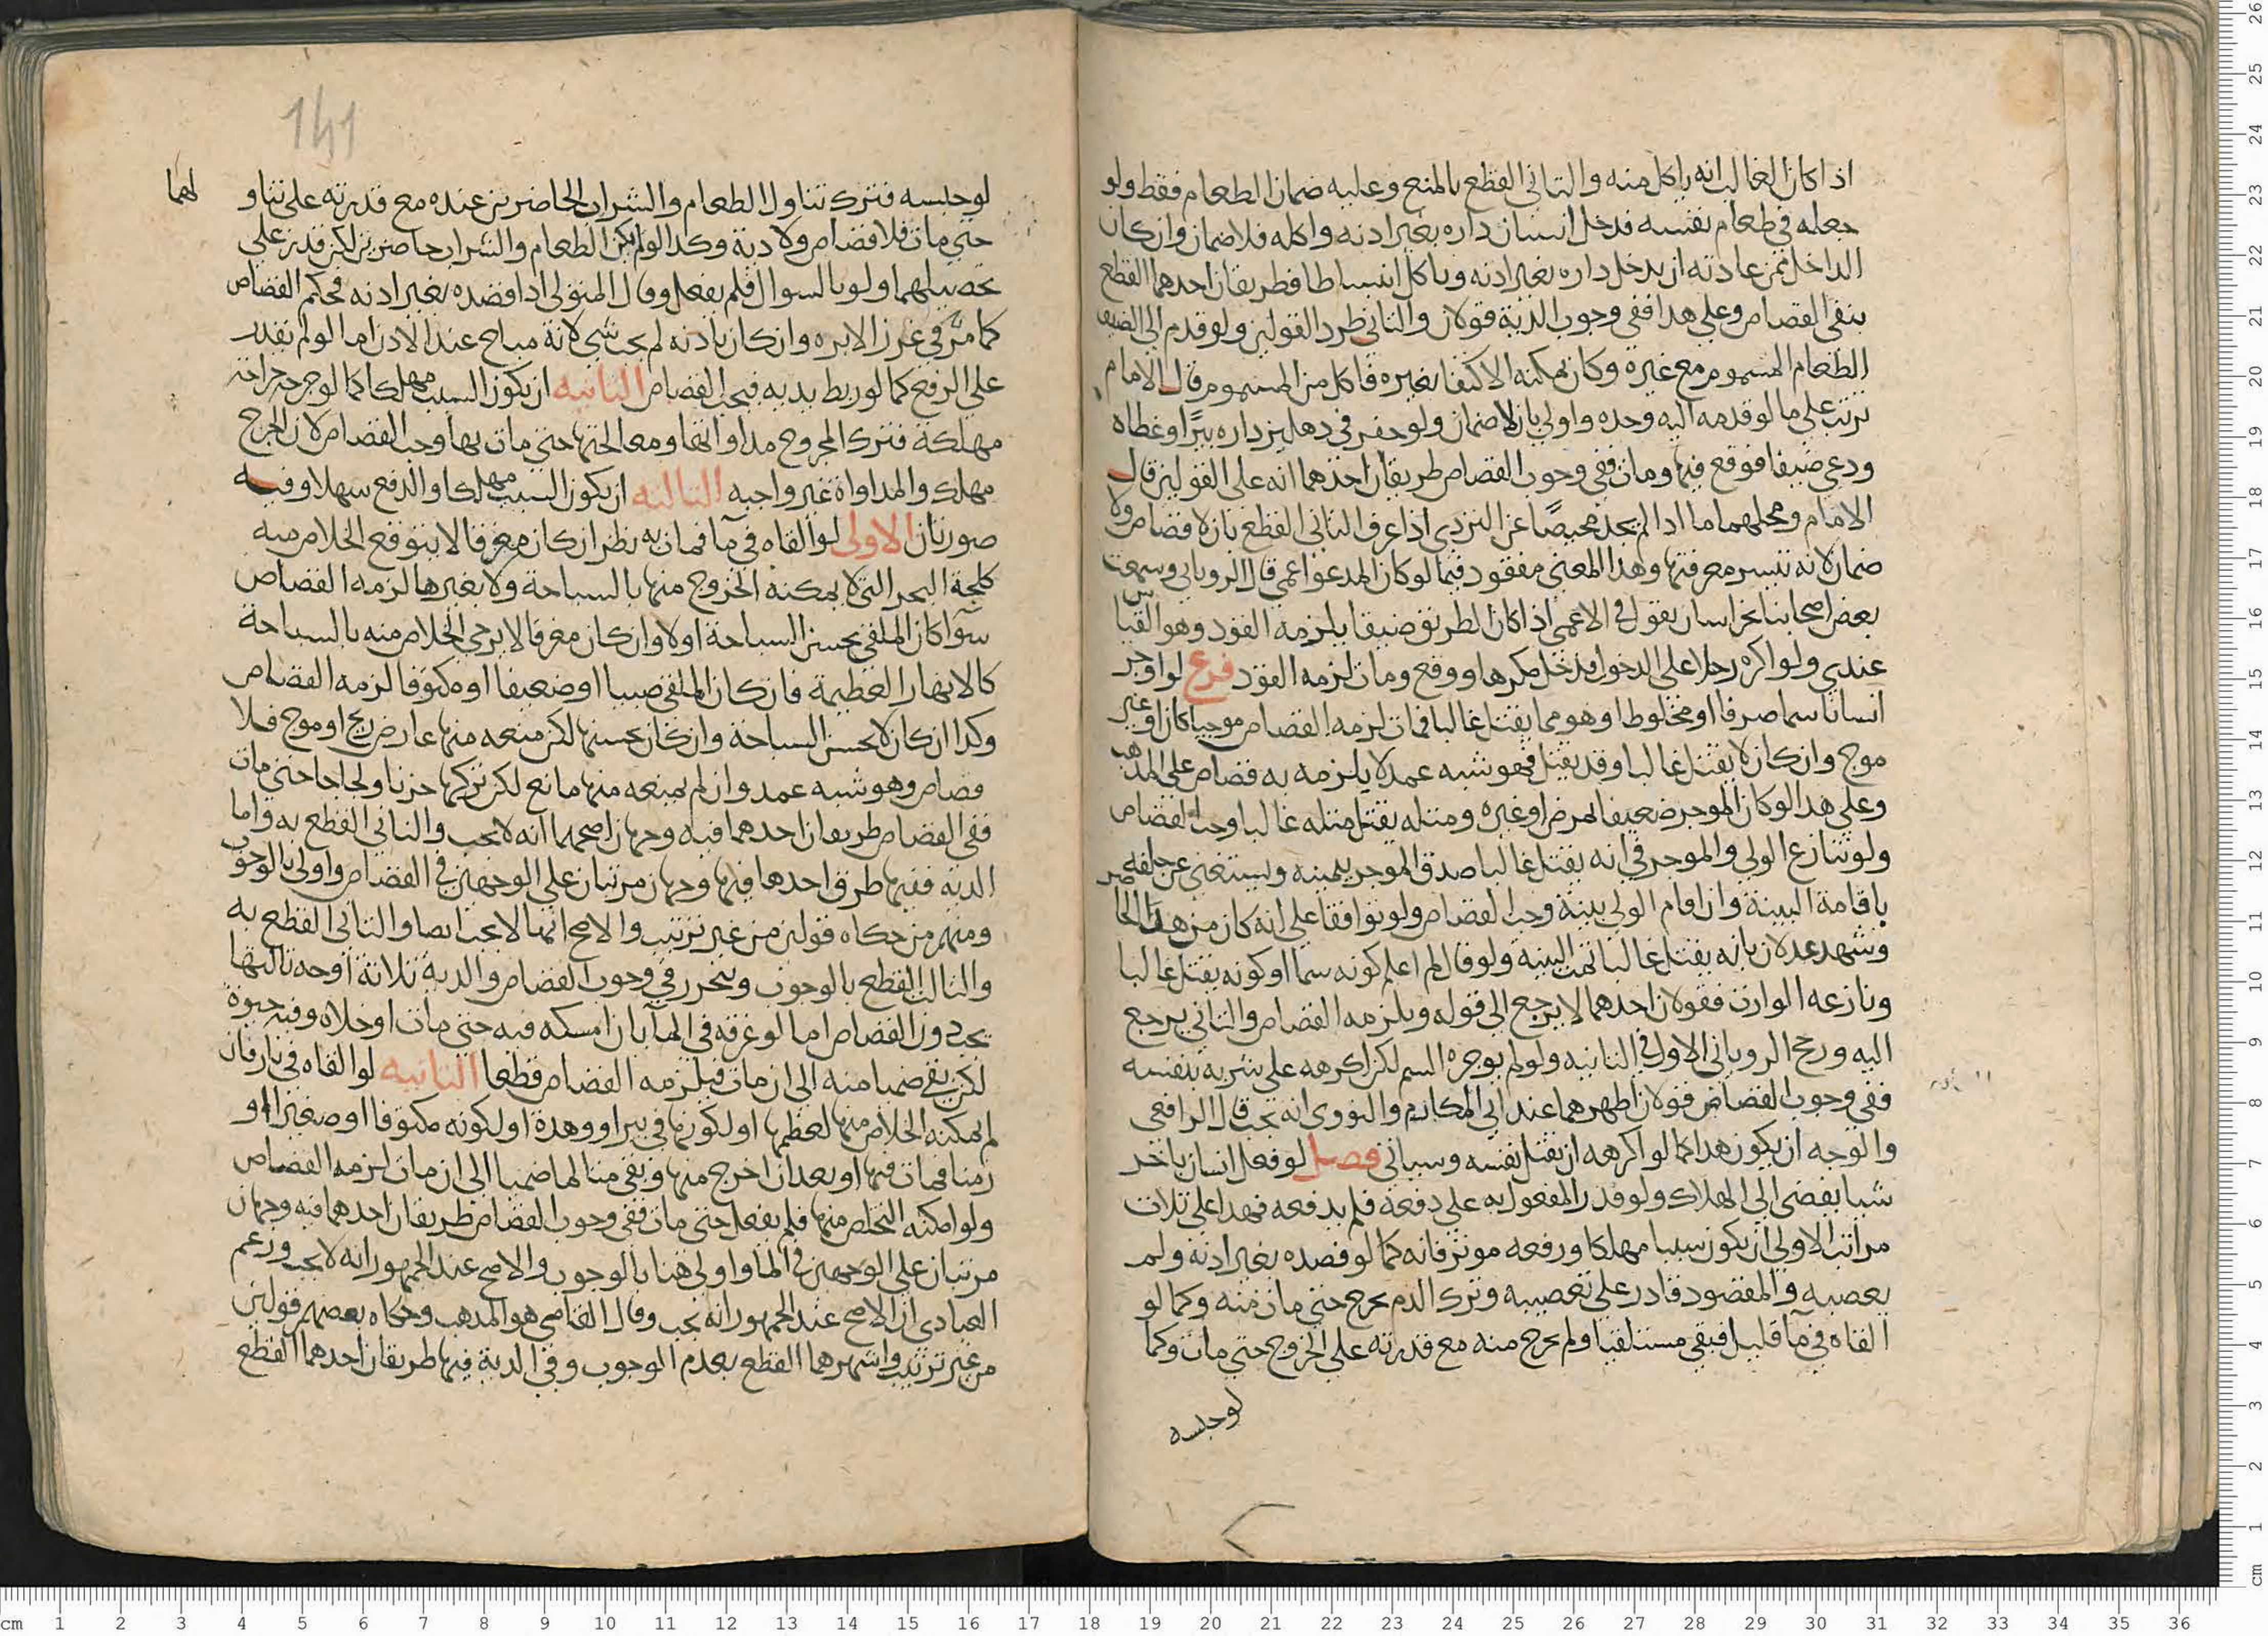 اذا كان الغالب انه ياكل منه والثاني القطع بالمنع وعليه ضمان الطعام فقط ولو
جعله في طعام نفسه فدخل انسان داره بغير اذنه واكله فلا ضمان وان كان
الداخل ممن عادته ان يدخل داره بغير اذنه وياكل انبساطا فطريقان احدهما القطع
بنفي القصاص وعلى هذا ففي وجوب الدية قولان والثاني طرد القولين ولو قدم الى الضيف
الطعام المسموم مع غيره وكان يمكنه الاكتفا بغيره فاكل من المسموم قال الامام
ترتب على ما لو قدمه اليه وحده واولى بان لا ضمان ولو حفر في دهليز داره بيرًا وغطاه
ودعى ضيفا فوقع فيها ومات ففي وجوب القصاص طريقان احدهما انه على القولين قال
الامام ومحلهما ما اذا لم يجد محيصًا عن التردي اذا عرف الثاني القطع بان لا قصاص ولا
ضمان لانه تتيسر معرفتها وهذا المعنى مفقود فيما لو كان المدعو اعمى قال الروياني وسمعت
بعض اصحابنا بخراسان يقول في الاعمى اذا كان الطريق ضيقا يلزمه القود وهو القياس
عندي ولو اكره رجلا على الدخول فدخل مكرها ووقع ومات لزمه القود فرع لو اوجر
انسانا سما صرفا او مخلوطا وهو مما يقتل غالبا فمات لزمه القصاص موحيا كان او غير
موح وان كان لا يقتل غالبا وقد يقتل فهو شبه عمد لا يلزمه به قصاص على المذهب
وعلى هذا لو كان الموجر ضعيفا لمرض او غيره ومثله يقتل مثله غالبا وجب القصاص
ولو تنازع الولي والموجر في انه يقتل غالبا صدق الموجر بيمينه ويستغنى عن حلفه
باقامة البينة وان اقام الولي بينة وجب القصاص ولو توافقا على انه كان من هذا الحاضر
وشهد عدلان بانه يقتل غالبا تمت البينة ولو قال لم اعلم كونه سما او كونه يقتل غالبا
ونازعه الوارث فقولان احدهما لا يرجع الى قوله ويلزمه القصاص والثاني يرجع
اليه ورجح الروياني الاول في الثانيه ولو لم يوجره السم لكن اكرهه على شربه بنفسه
ففي وجوب القصاص قولان اظهرهما عند ابي المكارم والنووي انه يجب قال الرافعي
والوجه ان يكون هذا كما لو اكرهه ان يقتل نفسه وسياتي فصل لو فعل انسان باخر
شيا يفضي الى الهلاك ولو قدر المفعول به على دفعه فلم يدفعه فهذا على ثلاث
مراتب الاولى ان يكون سببا مهلكا ورفعه موثر فانه كما لو فصده بغير اذنه ولم
يعصبه والمفصود قادر على تعصيبه وترك الدم يخرج حتى مات منه وكما لو
القاه في مآ قليل فبقي مستلقيا ولم يخرج منه مع قدرته على الخروج حتى مات وكما
لو حبسه
141
لو حبسه فترك تناول الطعام والشراب الحاضرين عنده مع قدرته على تناو لهما
حتى مات فلا قصاص ولا دية وكذا لو لم يكن الطعام والشراب حاضرين لكن قدر على
تحصيلهما ولو بالسوال فلم يفعل وقال المتولي اذا فصده بغير اذنه فحكم القصاص
كما مرّ في غرز الابره وان كان باذنه لم يجب شي لانه مباح عند الاذن اما لو لم يقدر
على الرفع كما لو ربط يديه فيجب القصاص الثانيه ان يكون السبب مهلكا كما لو جرحه جراحة
مهلكة فترك المجروح مداواتها ومعالجتها حتى مات بها وجب القصاص لان الجرح
مهلك والمداواة غير واجبه الثالثه ان يكون السبب مهلكا والدفع سهلا وفيه
صورتان الاولى لو القاه في مآ فمات به نظر ان كان مغرقا لا يتوقع الخلاص منه
كلجة البحر التي لا يمكنه الخروج منها بالسباحة ولا بغيرها لزمه القصاص
سوآ كان الملقى يحسن السباحة او لا وان كان مغرقا لا يرجى الخلاص منه بالسباحة
كالانهار العظيمة فان كان الملقى صبيا او ضعيفا او مكتوفا لزمه القصاص
وكذا ان كان لا يحسن السباحة وان كان يحسنها لكن منعه منها عارض ريح او موج فلا
قصاص وهو شبه عمد وان لم يمنعه منها مانع لكن تركها حزنا ولجاجا حتى مات
ففي القصاص طريقان احدهما فيه وجهان اصحهما انه لا يجب والثاني القطع به واما
الدية ففيها طرق احدها فيها وجهان مرتبان على الوجهين في القصاص واولى بالوجوب
ومنهم من حكاه قولين من غير ترتيب والاصح انها لا تجب ايضا والثاني القطع به
والثالث القطع بالوجوب ويتحرر في وجوب القصاص والدية ثلاثة اوجه ثالثها
تجب دون القصاص اما لو غرقه في المآ بان امسكه فيه حتى مات او خلاه وفيه حيوة
لكن بقي ضمنا منه الى ان مات فيلزمه القصاص قطعا الثانيه لو القاه في نار فان
لم يمكنه الخلاص منها لعظمها او لكونها في بير او وهدة او لكونه مكتوفا او صغيرا او
زمنا فمات فيها او بعد ان اخرج منها وبقي متالما ضمنا الى ان مات لزمه القصاص
ولو امكنه التخلص منها فلم يفعل حتى مات ففي وجوب القصاص طريقان احدهما فيه وجهان
مرتبان على الوجهين في الما واولى هنا بالوجوب والاصح عند الجمهور انه لا يجب وزعم
العبادي ان الاصح عند الجمهور انه يجب وقال القاضي هو المذهب وحكاه بعضهم قولين
من غير ترتيب واشهرهما القطع بعدم الوجوب وفي الدية فيها طريقان احدهما القطع